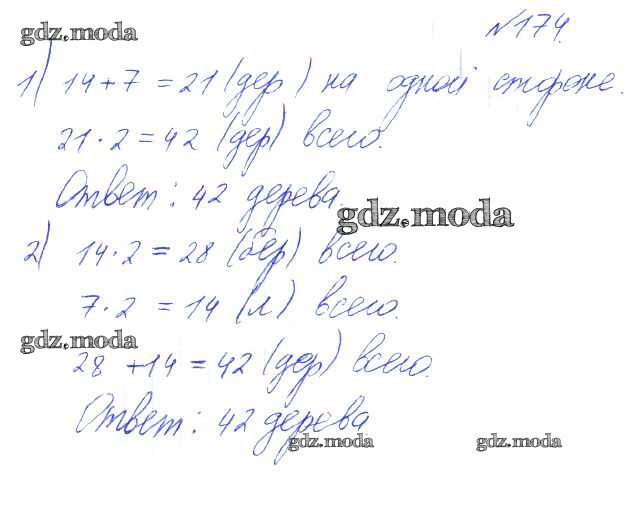 gdz.moda
№174.
1) 14+7 = 21 (дер) на одной стороне.
21·2 = 42 (дер) всего.
Ответ: 42 дерева.
gdz.moda
2) 14·2 = 28 (бер) всего.
7·2 = 14 (л) всего.
gdz.moda
28 +14 = 42 (дер) всего.
Ответ: 42 дерева
gdz.moda gdz.moda